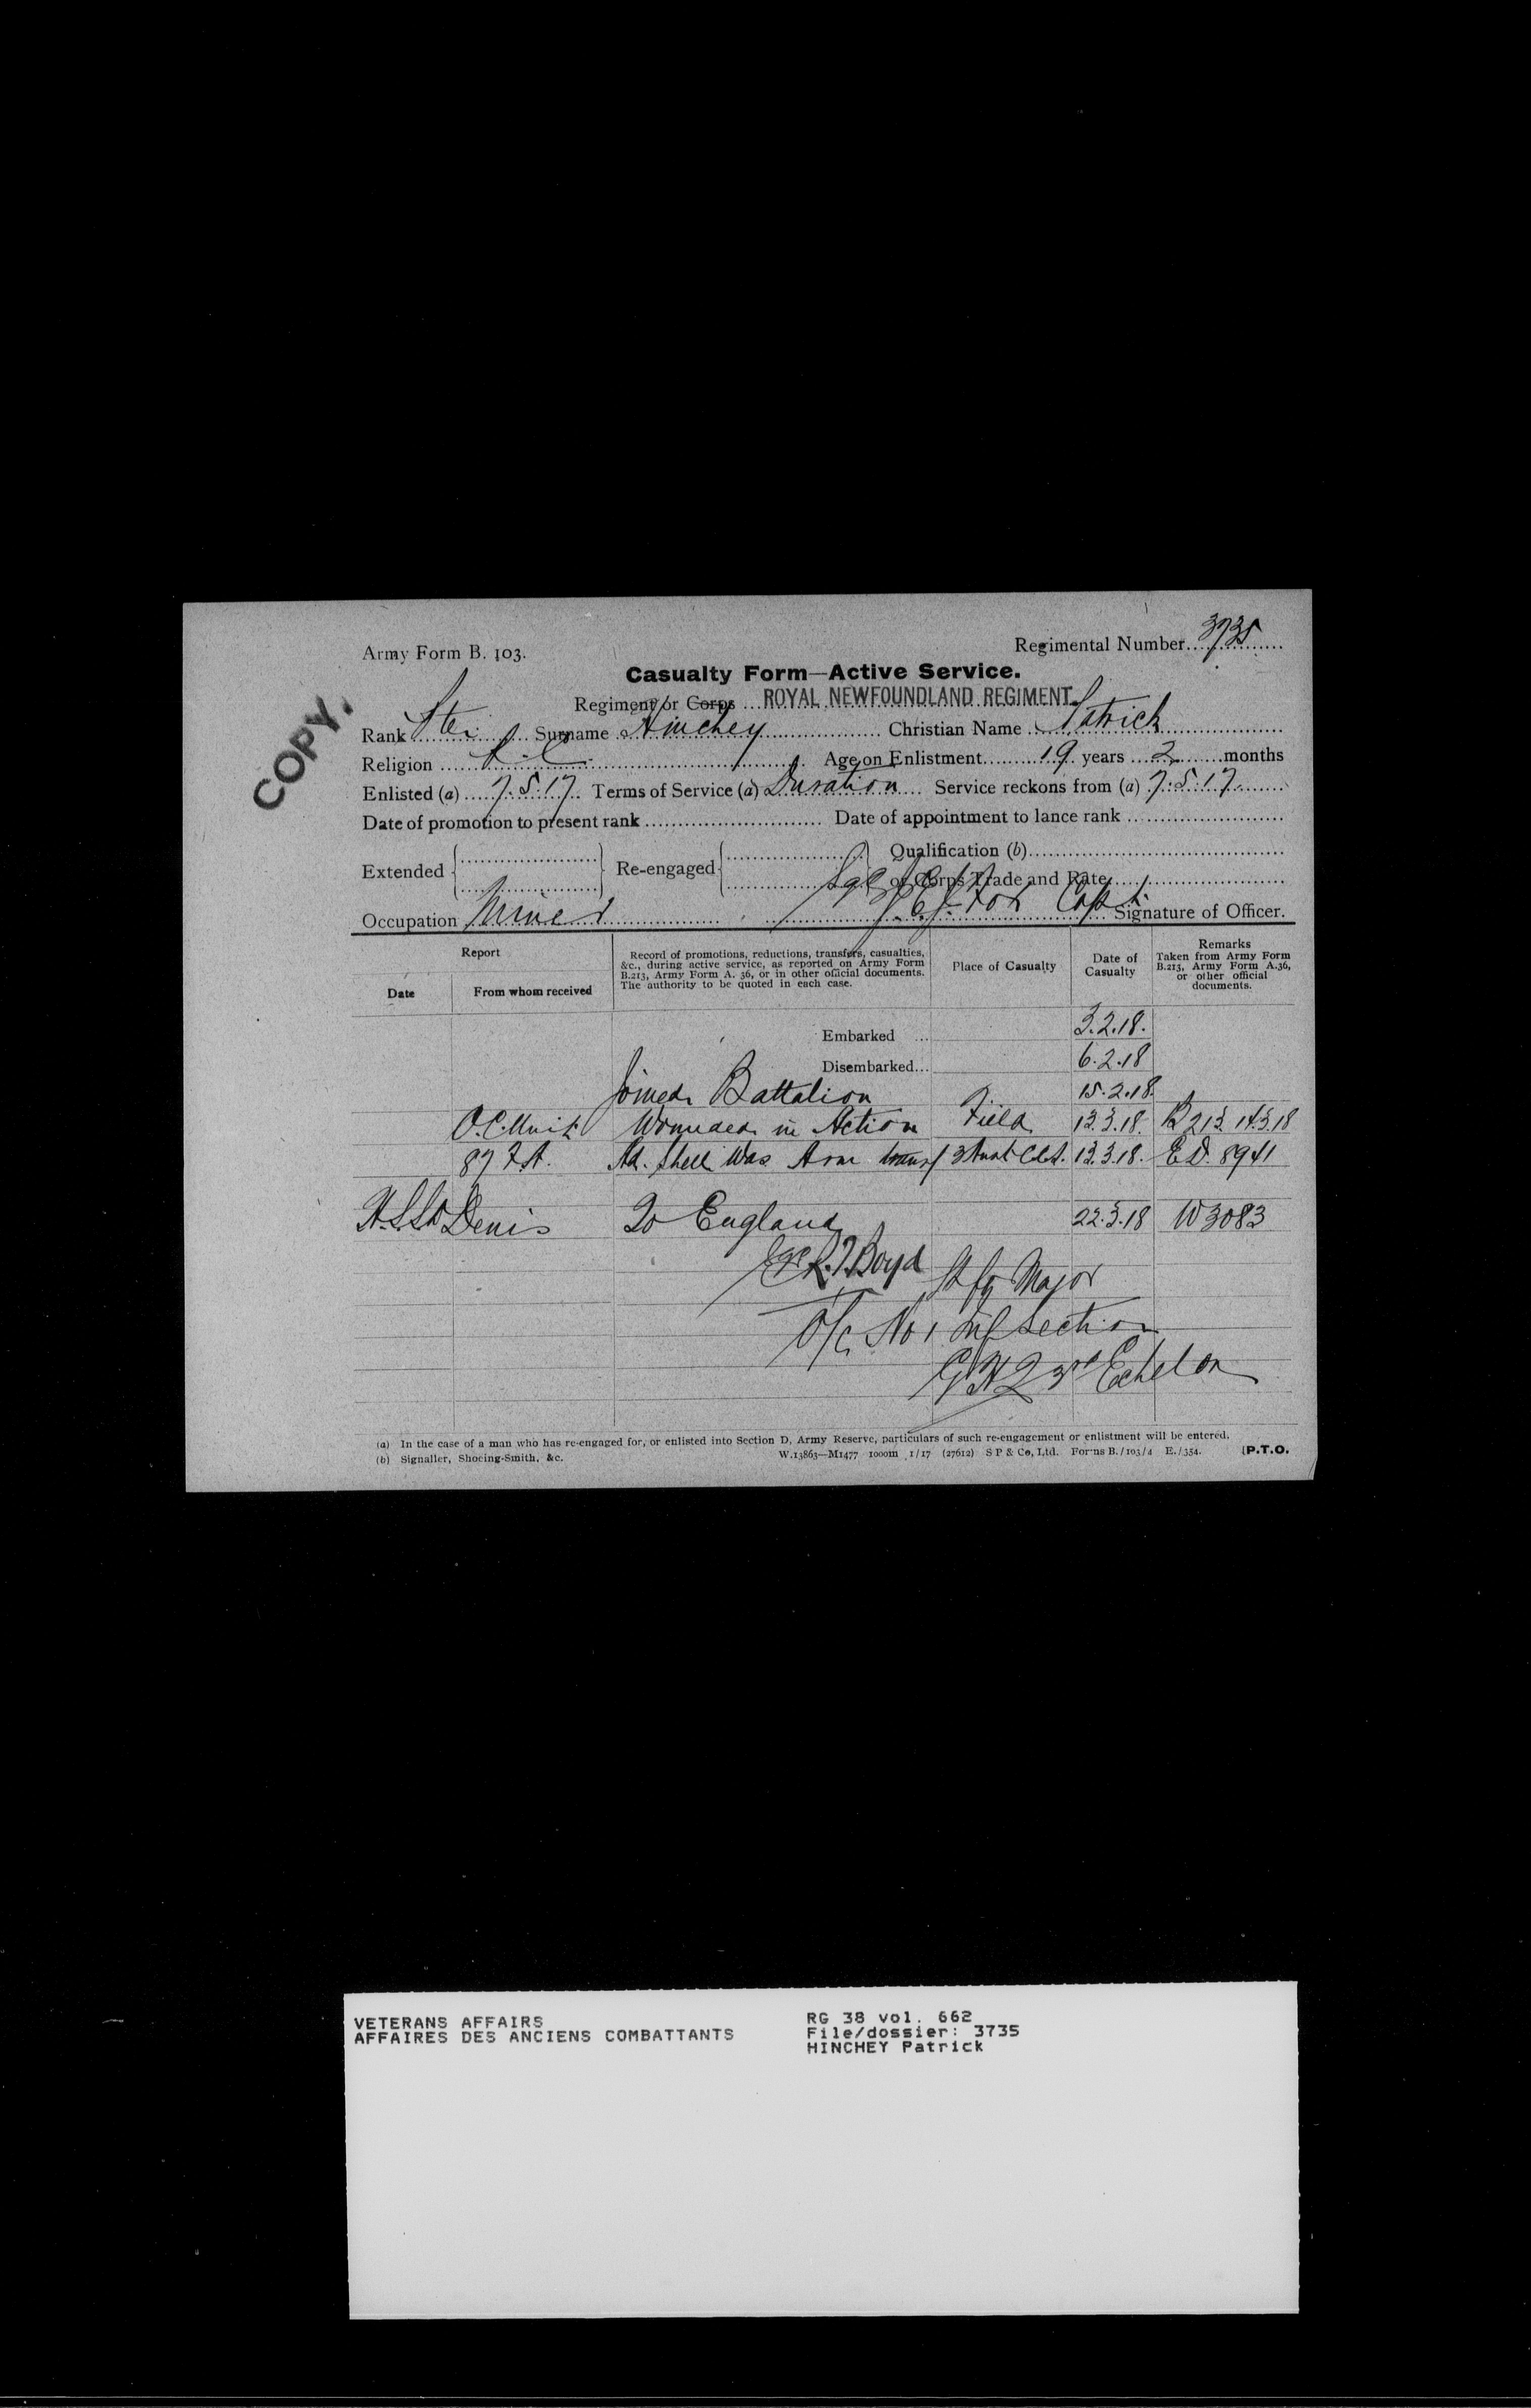 COPY.
Army Form B. 103.
Regimental Number 3735
Casualty Form—Active Service.
Regiment or Corps ROYAL NEWFOUNDLAND REGIMENT.
Rank Surname Hinchey Christian Name Patrick
Religion R.C. Age on Enlistment 19 years 2 months
Enlisted (a) 7.5.17 Terms of Service (a) Duration Service reckons from (a) 7.5.17
Date of promotion to present rank Date of appointment to lance rank
Extended Re-engaged Qualification (b)
or Corps Trade and Rate
Occupation Miner Capt. Signature of Officer.
Report
Date From whom received
Record of promotions, reductions, transfers, casualties, &c., during active service, as reported on Army Form B.213, Army Form A. 36, or in other official documents. The authority to be quoted in each case.
Place of Casualty
Date of Casualty
Remarks Taken from Army Form B.213, Army Form A.36, or other official documents.
Embarked ... 3.2.18.
Disembarked... 6.2.18
Joined Battalion 15.2.18.
O.C. Unit Wounded in Action Field 13.3.18. B213 14.3.18
87 F.A. Ad. Shell Arm transf 13.3.18. E.D. 8941
Denis To England 22.3.18 W3083
Boyd Major
O/C No 1 Inf Section
GHQ 3rd Echelon
(a) In the case of a man who has re-engaged for, or enlisted into Section D, Army Reserve, particulars of such re-engagement or enlistment will be entered.
(b) Signaller, Shoeing-Smith, &c. W.13863—M1477 1000m 1/17 (27612) S P & Co, Ltd. Forms B./103/4 E./354. [P.T.O.
VETERANS AFFAIRS
AFFAIRES DES ANCIENS COMBATTANTS
RG 38 vol. 662
File/dossier: 3735
HINCHEY Patrick